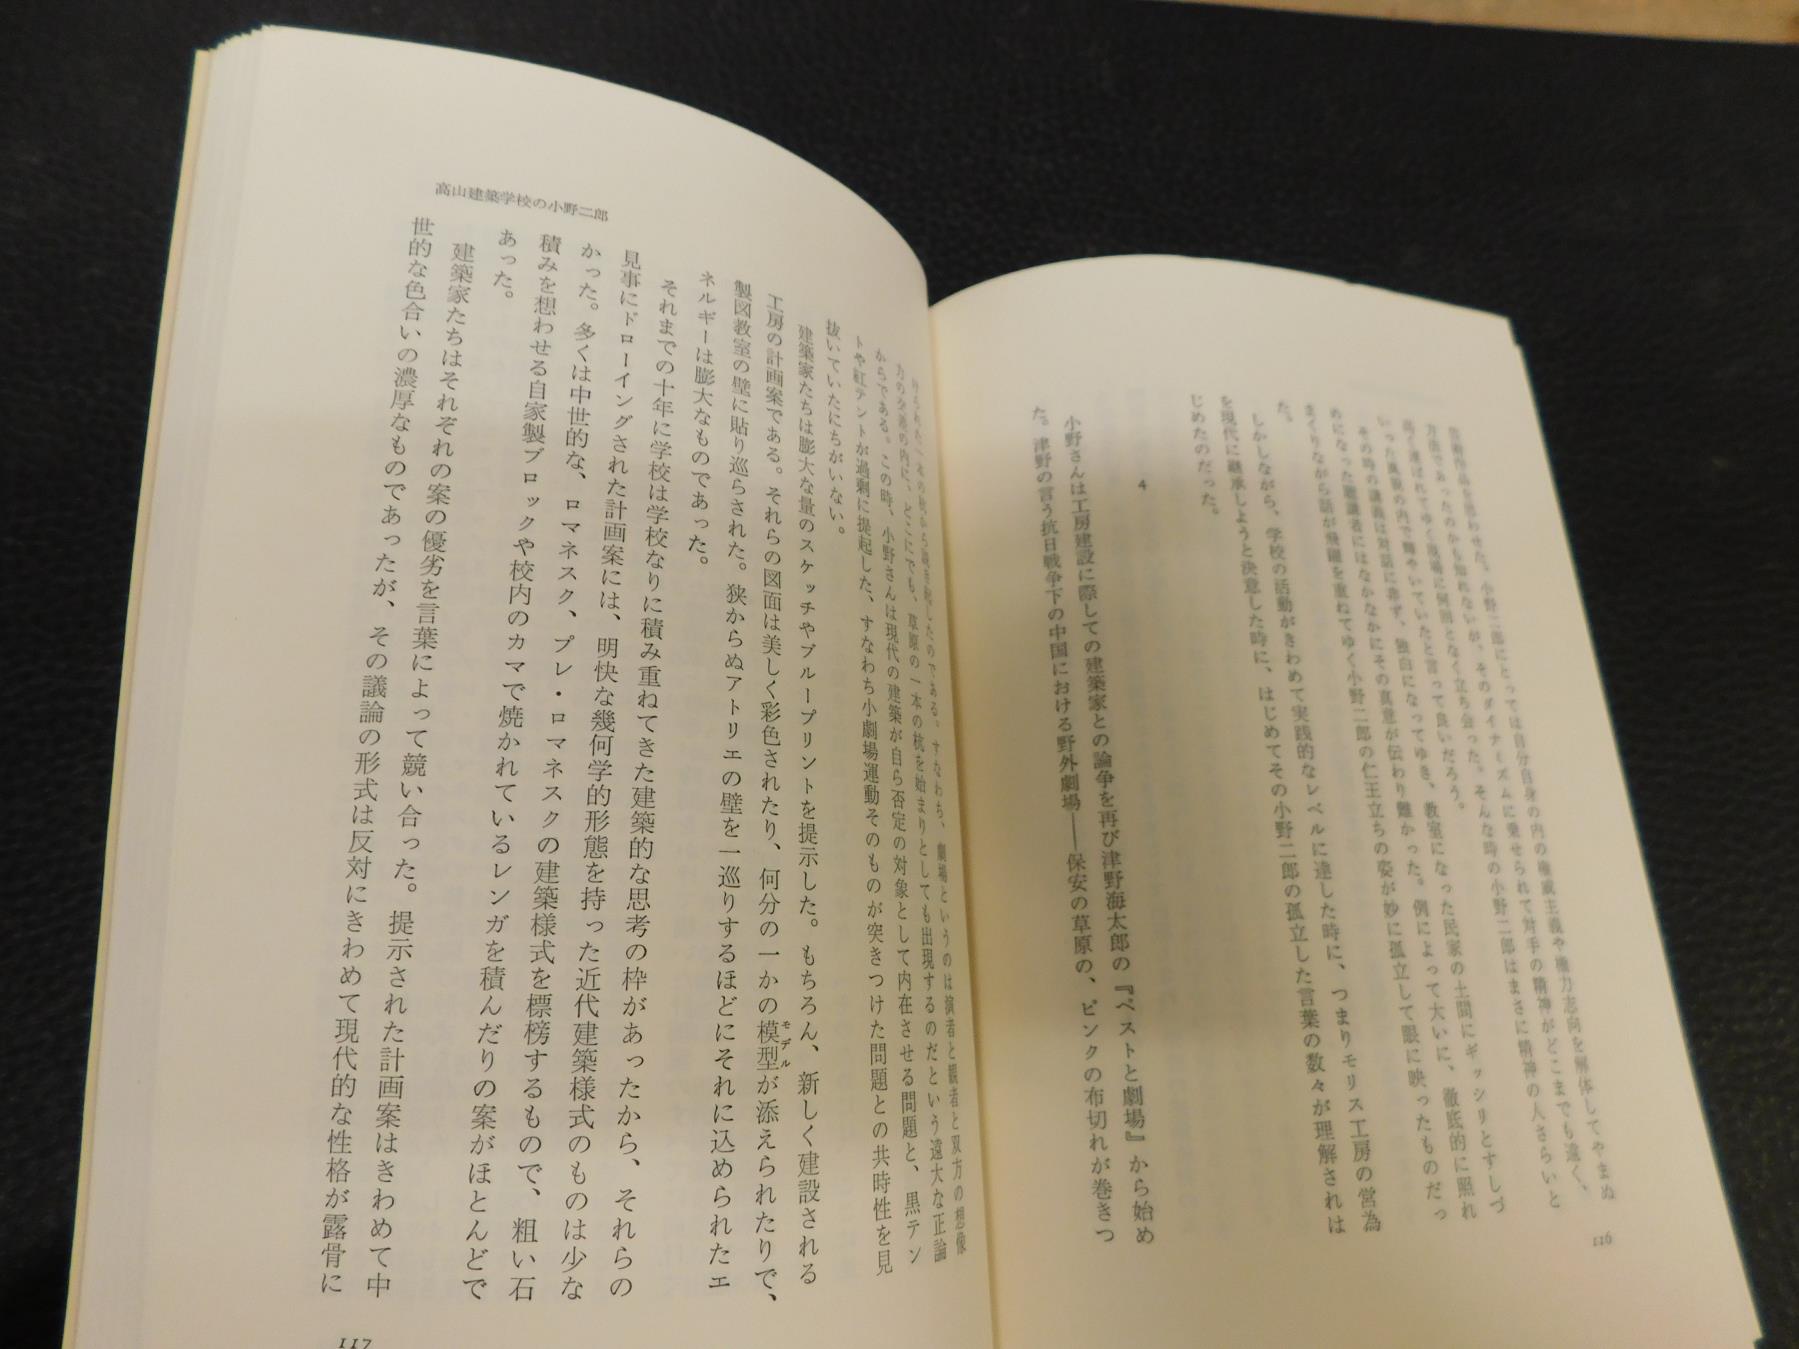 芸術作品を思わせた。小野二郎にとっては自分自身の内の権威主義や権力志向を解体してやまぬ
方法であったのかも知れないが、そのダイナミズムに乗せられて対手の精神がどこまでも遠く、
高く運ばれてゆく現場に何回となく立ち会った。そんな時の小野二郎はまさに精神の人さらいと
いった風貌の内で輝やいていたと言って良いだろう。
その時の講義は対話に非ず、独白になってゆき、教室になった民家の土間にギッシリとすしづ
めになった聴講者にはなかなかにその真意が伝わり難かった。例によって大いに、徹底的に照れ
まくりながら話が飛躍を重ねてゆく小野二郎の仁王立ちの姿が妙に孤立して眼に映ったものだっ
た。
しかしながら、学校の活動がきわめて実践的なレベルに達した時に、つまりモリス工房の営為
を現代に継承しようと決意した時に、はじめてその小野二郎の孤立した言葉の数々が理解されは
じめたのだった。
4
小野さんは工房建設に際しての建築家との論争を再び津野海太郎の『ペストと劇場』から始め
た。津野の言う抗日戦争下の中国における野外劇場——保安の草原の、ピンクの布切れが巻きつ
116
けられた一本の杭から説き起したのである。すなわち、劇場というのは演者と観者と双方の想像
力の交感の内に、どこにでも、草原の一本の杭を始まりとしても出現するのだという遠大な正論
からである。この時、小野さんは現代の建築が自ら否定の対象として内在させる問題と、黒テン
トや紅テントが過剰に提起した、すなわち小劇場運動そのものが突きつけた問題との共時性を見
抜いていたにちがいない。
建築家たちは膨大な量のスケッチやブループリントを提示した。もちろん、新しく建設される
工房の計画案である。それらの図面は美しく彩色されたり、何分の一かの模型が添えられたりで、
モデル
製図教室の壁に貼り巡らされた。狭からぬアトリエの壁を一巡りするほどにそれに込められたエ
ネルギーは膨大なものであった。
それまでの十年に学校は学校なりに積み重ねてきた建築的な思考の枠があったから、それらの
見事にドローイングされた計画案には、明快な幾何学的形態を持った近代建築様式のものは少な
かった。多くは中世的な、ロマネスク、プレ・ロマネスクの建築様式を標榜するもので、粗い石
積みを想わせる自家製ブロックや校内のカマで焼かれているレンガを積んだりの案がほとんどで
あった。
建築家たちはそれぞれの案の優劣を言葉によって競い合った。提示された計画案はきわめて中
世的な色合いの濃厚なものであったが、その議論の形式は反対にきわめて現代的な性格が露骨に
高山建築学校の小野二郎
117